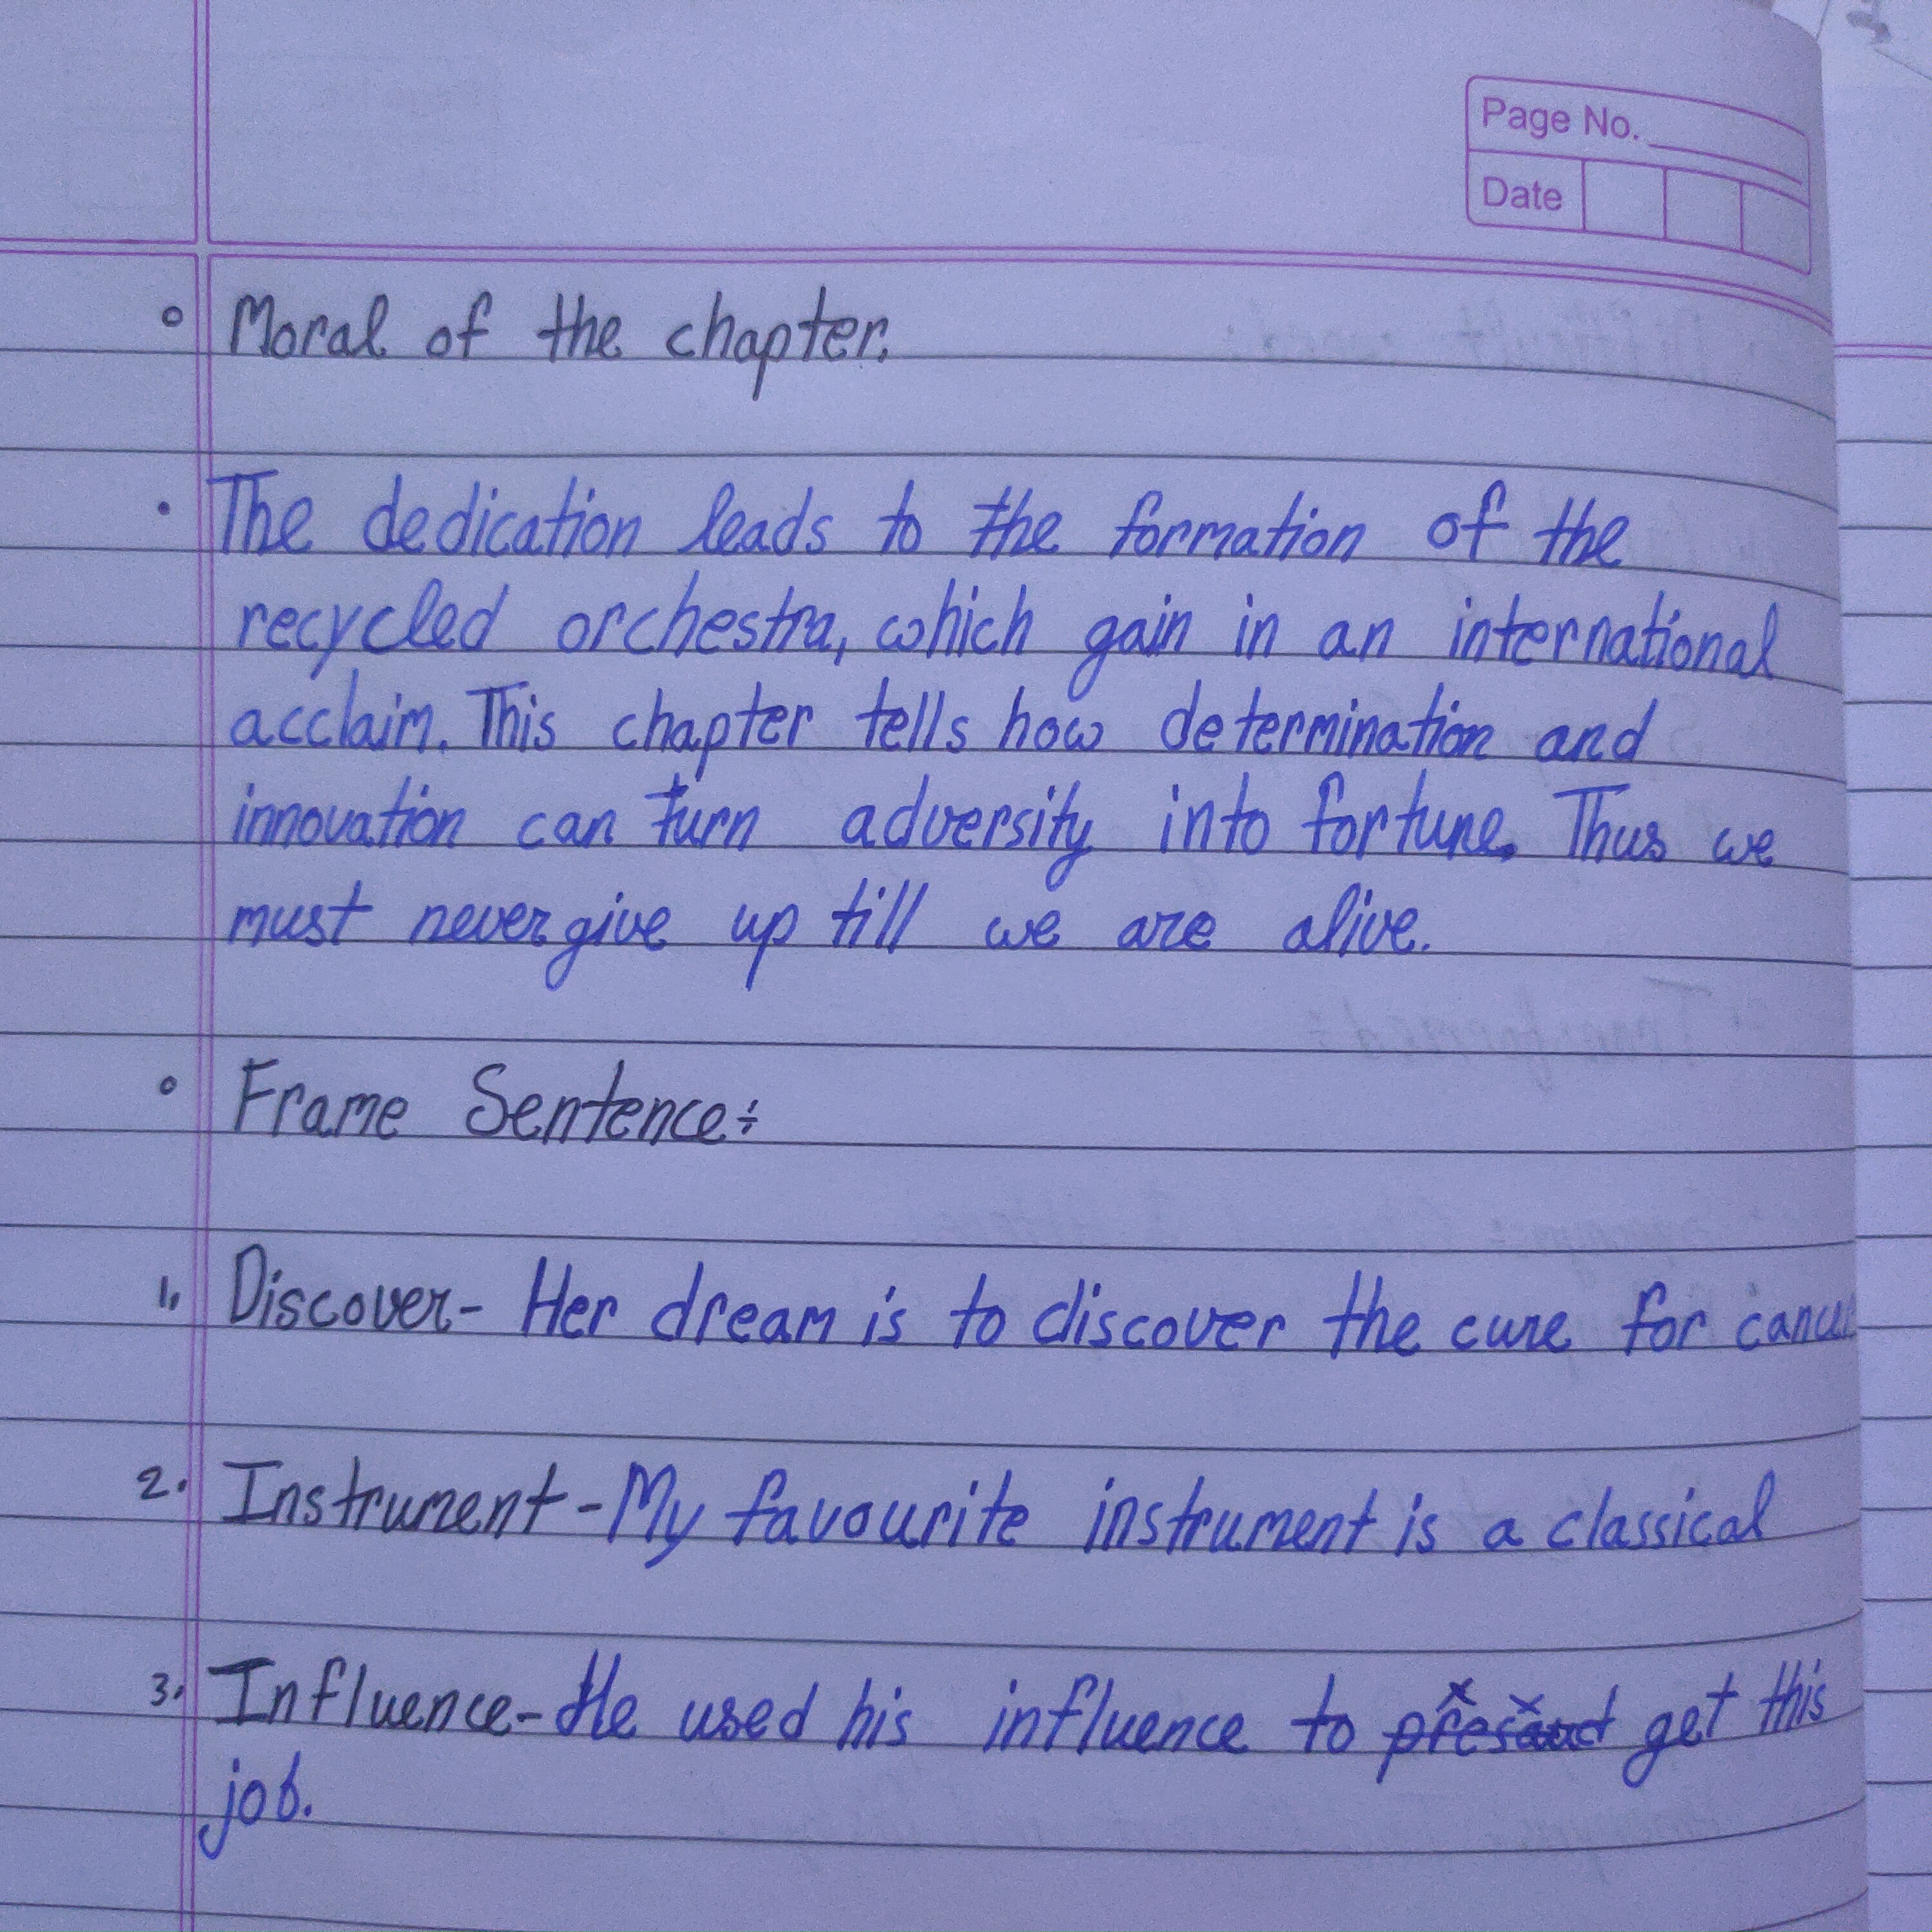 Page No.
Date
Moral of the chapter.
The dedication leads to the formation of the
recycled orchestra, which gain in an international
acclaim. This chapter tells how determination and
innovation can turn adversity into fortune. Thus we
must never give up till we are alive.
Frame Sentence÷
1. Discover- Her dream is to discover the cure for
2. Instrument-My favourite instrument is a classical
3. Influence-He used his influence to get this
job.